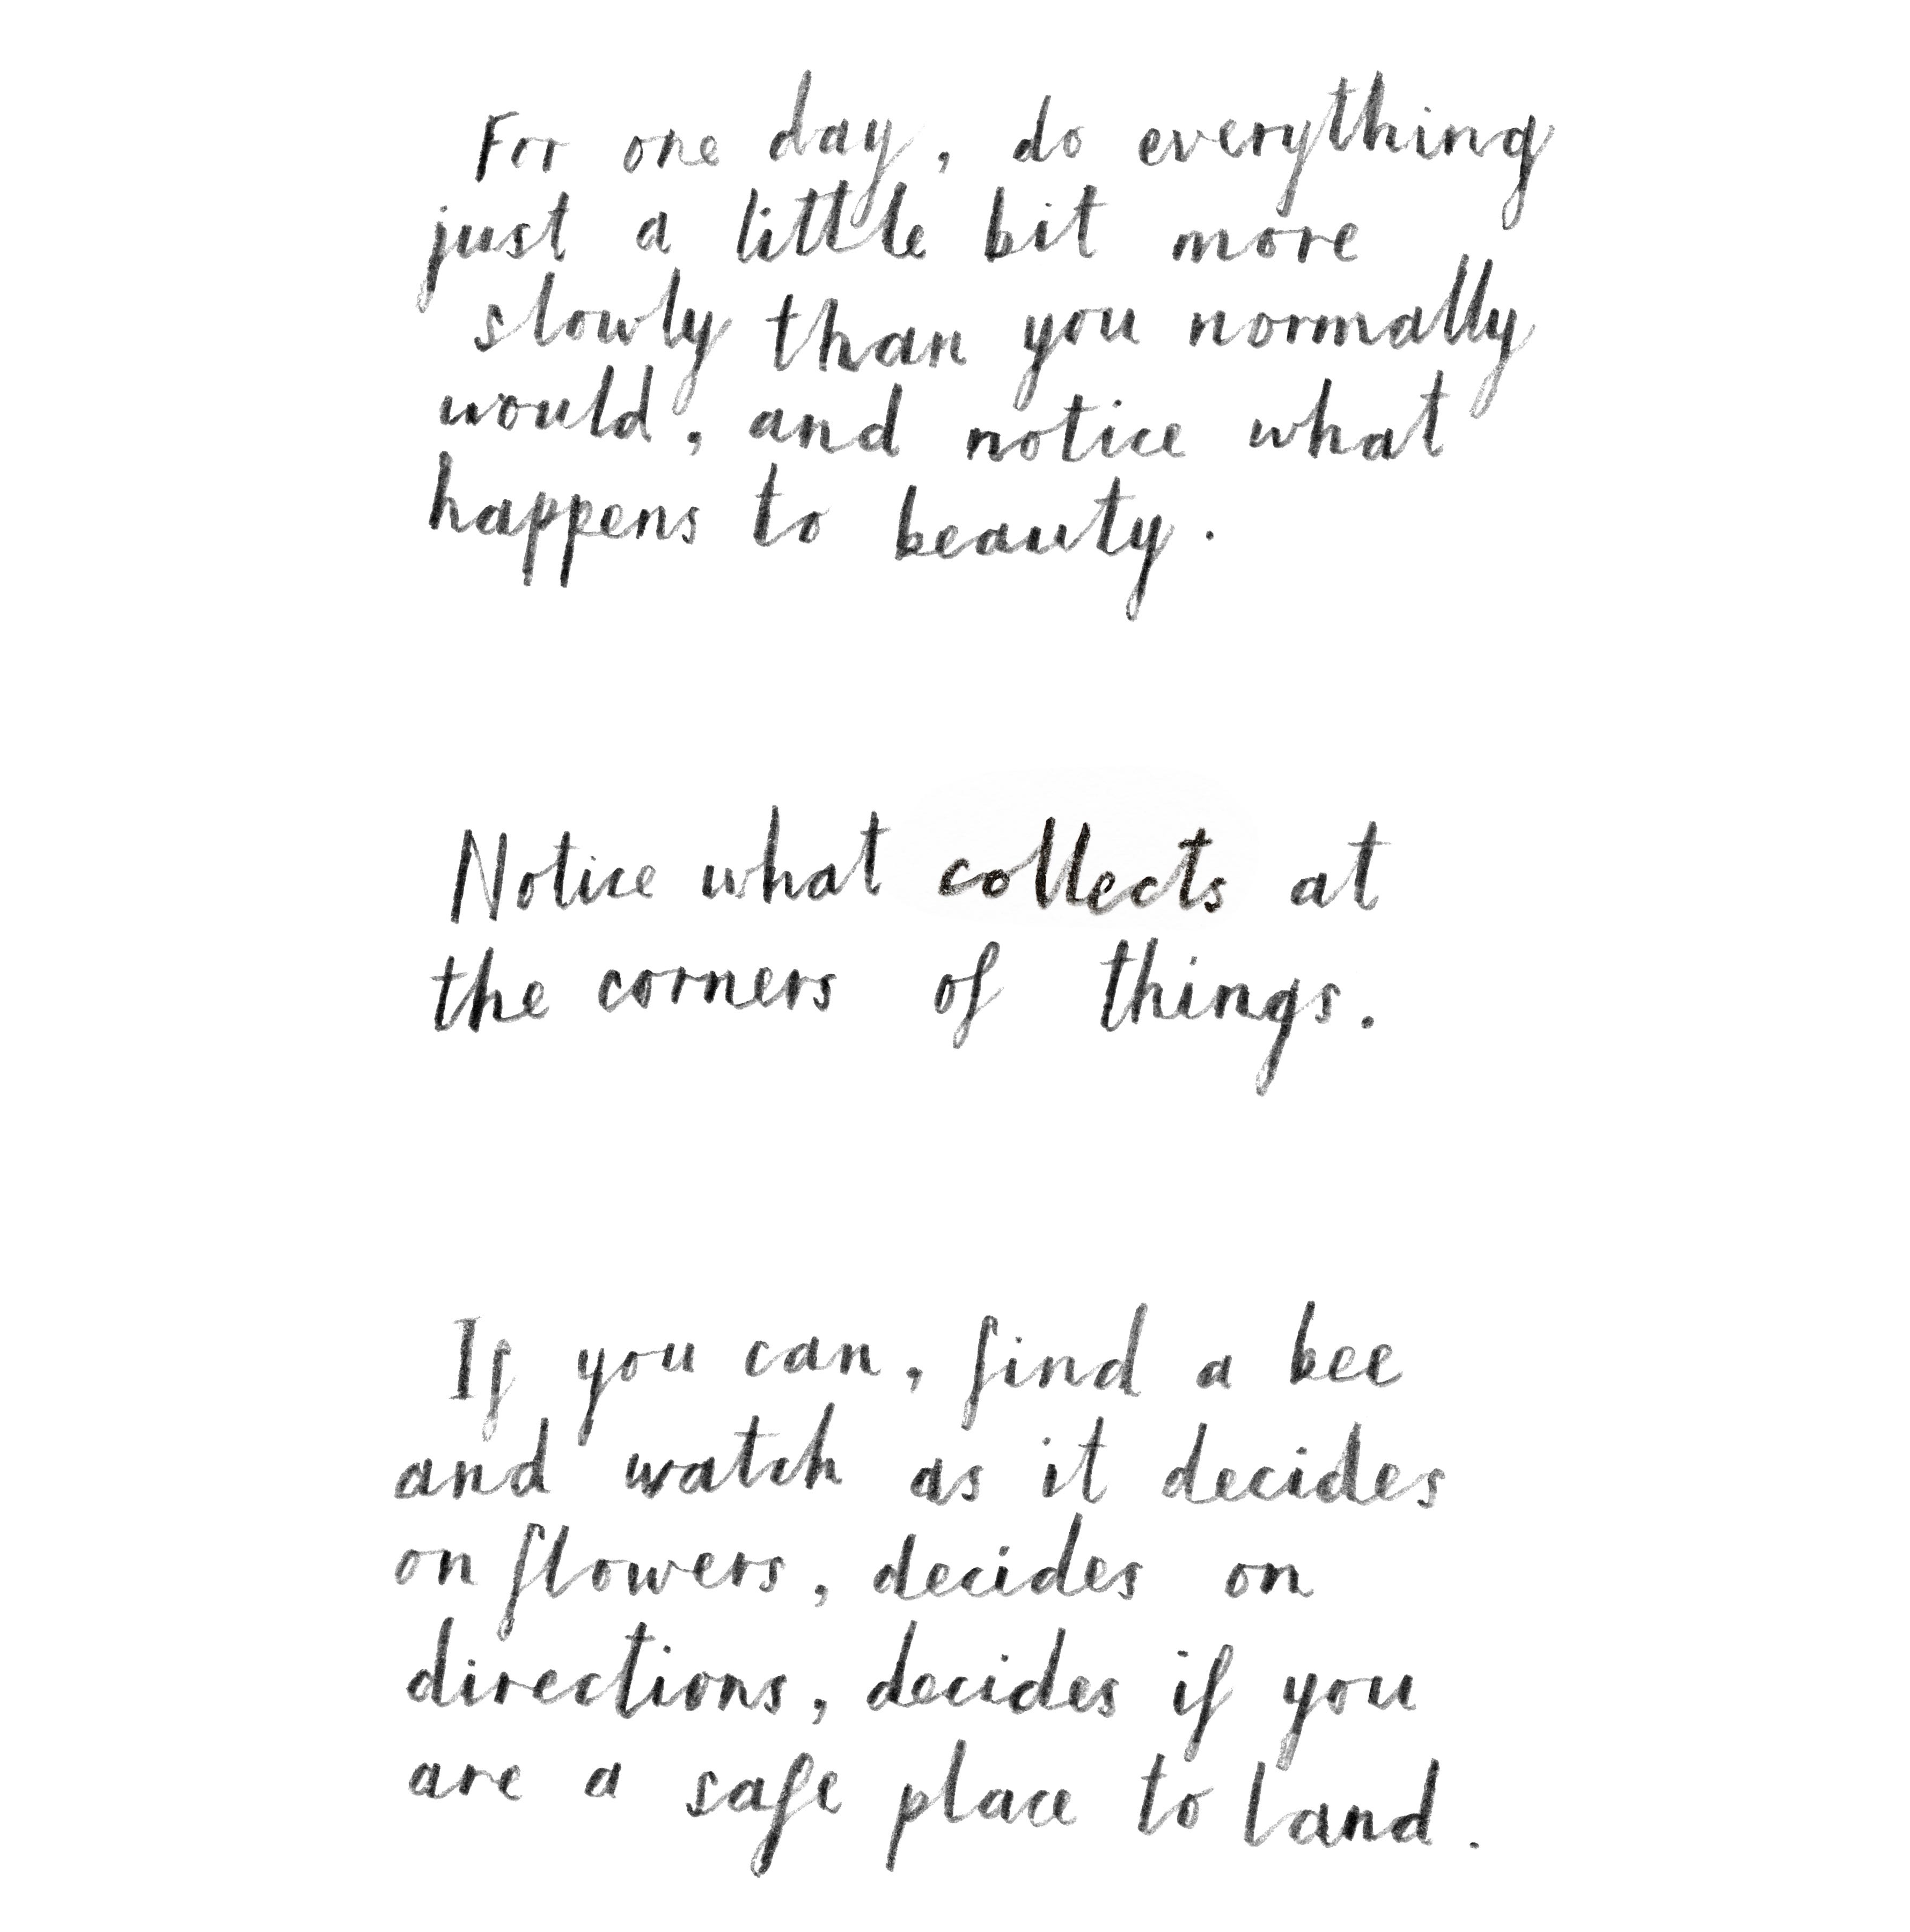 For one day, do everything
just a little bit more
slowly than you normally
would, and notice what
happens to beauty.
Notice what collects at
the corners of things.
If you can, find a bee
and watch as it decides
on flowers, decides on
directions, decides if you
are a safe place to land.